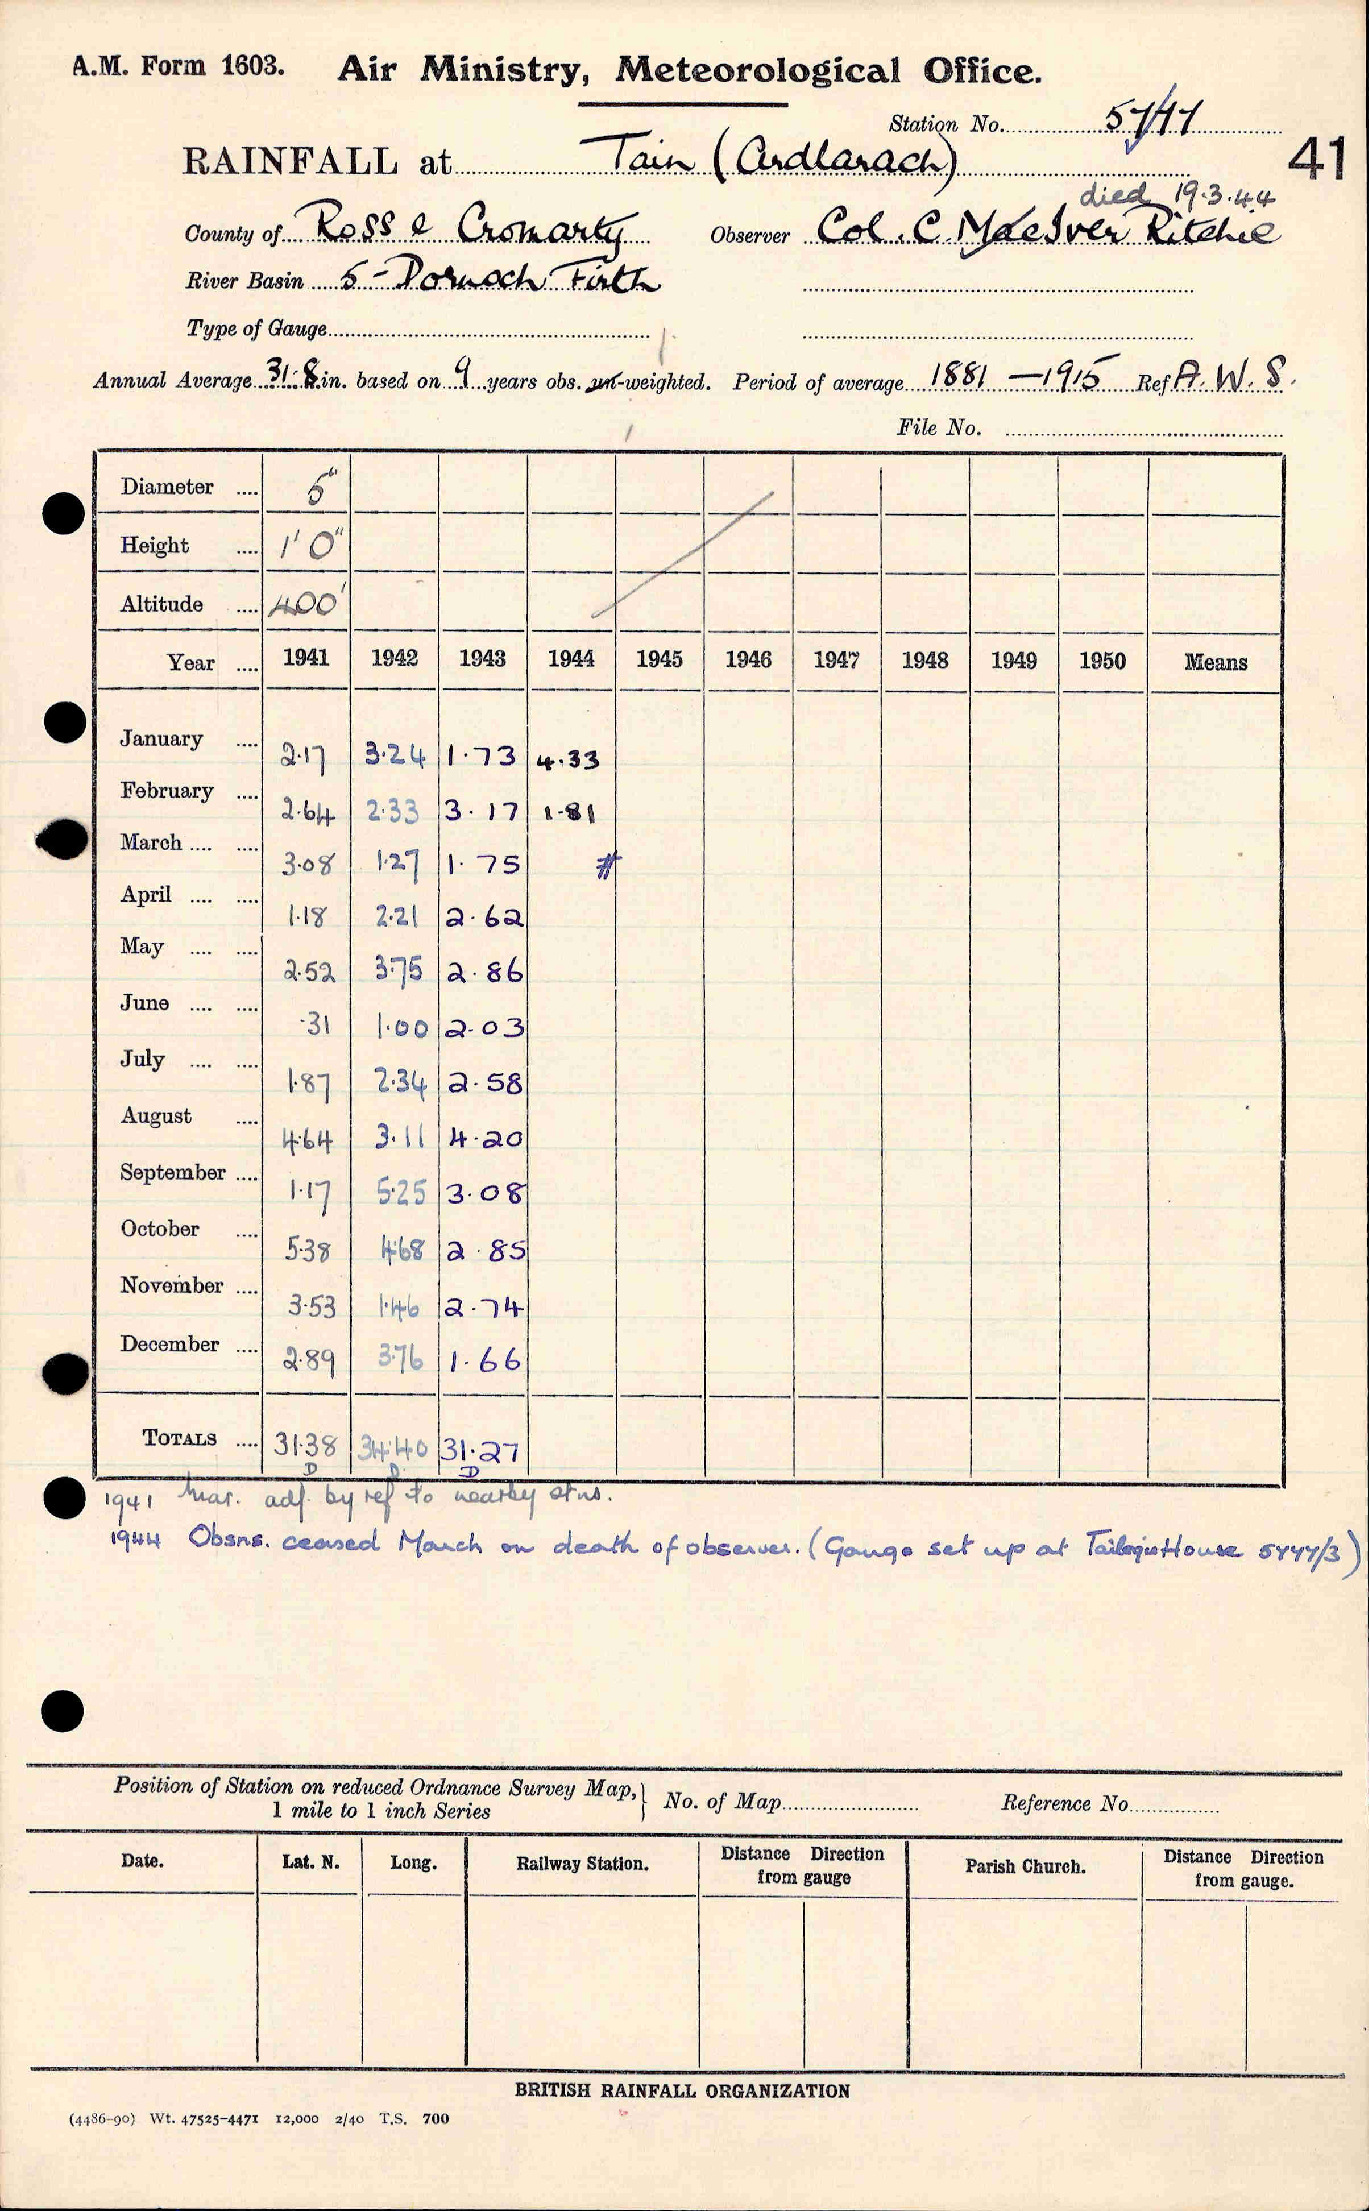 A.M. Form 1603. Air Ministry, Meteorological Office.
Station No. 5747
41
RAINFALL at Tain (Ardlarach)
died 19.3.44
County of Ross & Cromarty Observer Col. C. MacIver Ritchie
River Basin 5 - Dornoch Firth
Type of Gauge
Annual Average 31.8 in. based on 9 years obs. un-weighted. Period of average 1881 - 1915 Ref A. W. S.
File No.
Diameter .... 5"
Height .... 1' 0"
Altitude .... 400'
Year .... 1941 1942 1943 1944 1945 1946 1947 1948 1949 1950 Means
January .... 2.17 3.24 1.73 4.33
February .... 2.64 2.33 3.17 1.81
March .... .... 3.08 1.27 1.75 #
April .... .... 1.18 2.21 2.62
May .... .... 2.52 3.75 2.86
June .... .... .31 1.00 2.03
July .... .... 1.87 2.34 2.58
August .... 4.64 3.11 4.20
September .... 1.17 5.25 3.08
October .... 5.38 4.68 2.85
November .... 3.53 1.46 2.74
December .... 2.89 3.76 1.66
TOTALS .... 31.38 34.40 31.27
D D D
1941 Mar. adj. by ref to nearby stns.
1944 Obsns. ceased March on death of observer. (Gauge set up at House 5747/3)
Position of Station on reduced Ordnance Survey Map, } No. of Map Reference No.
1 mile to 1 inch Series
Date. Lat. N. Long. Railway Station. Distance Direction from gauge Parish Church. Distance Direction from gauge.
BRITISH RAINFALL ORGANIZATION
(4486-90) Wt. 47525-4471 12,000 2/40 T.S. 700